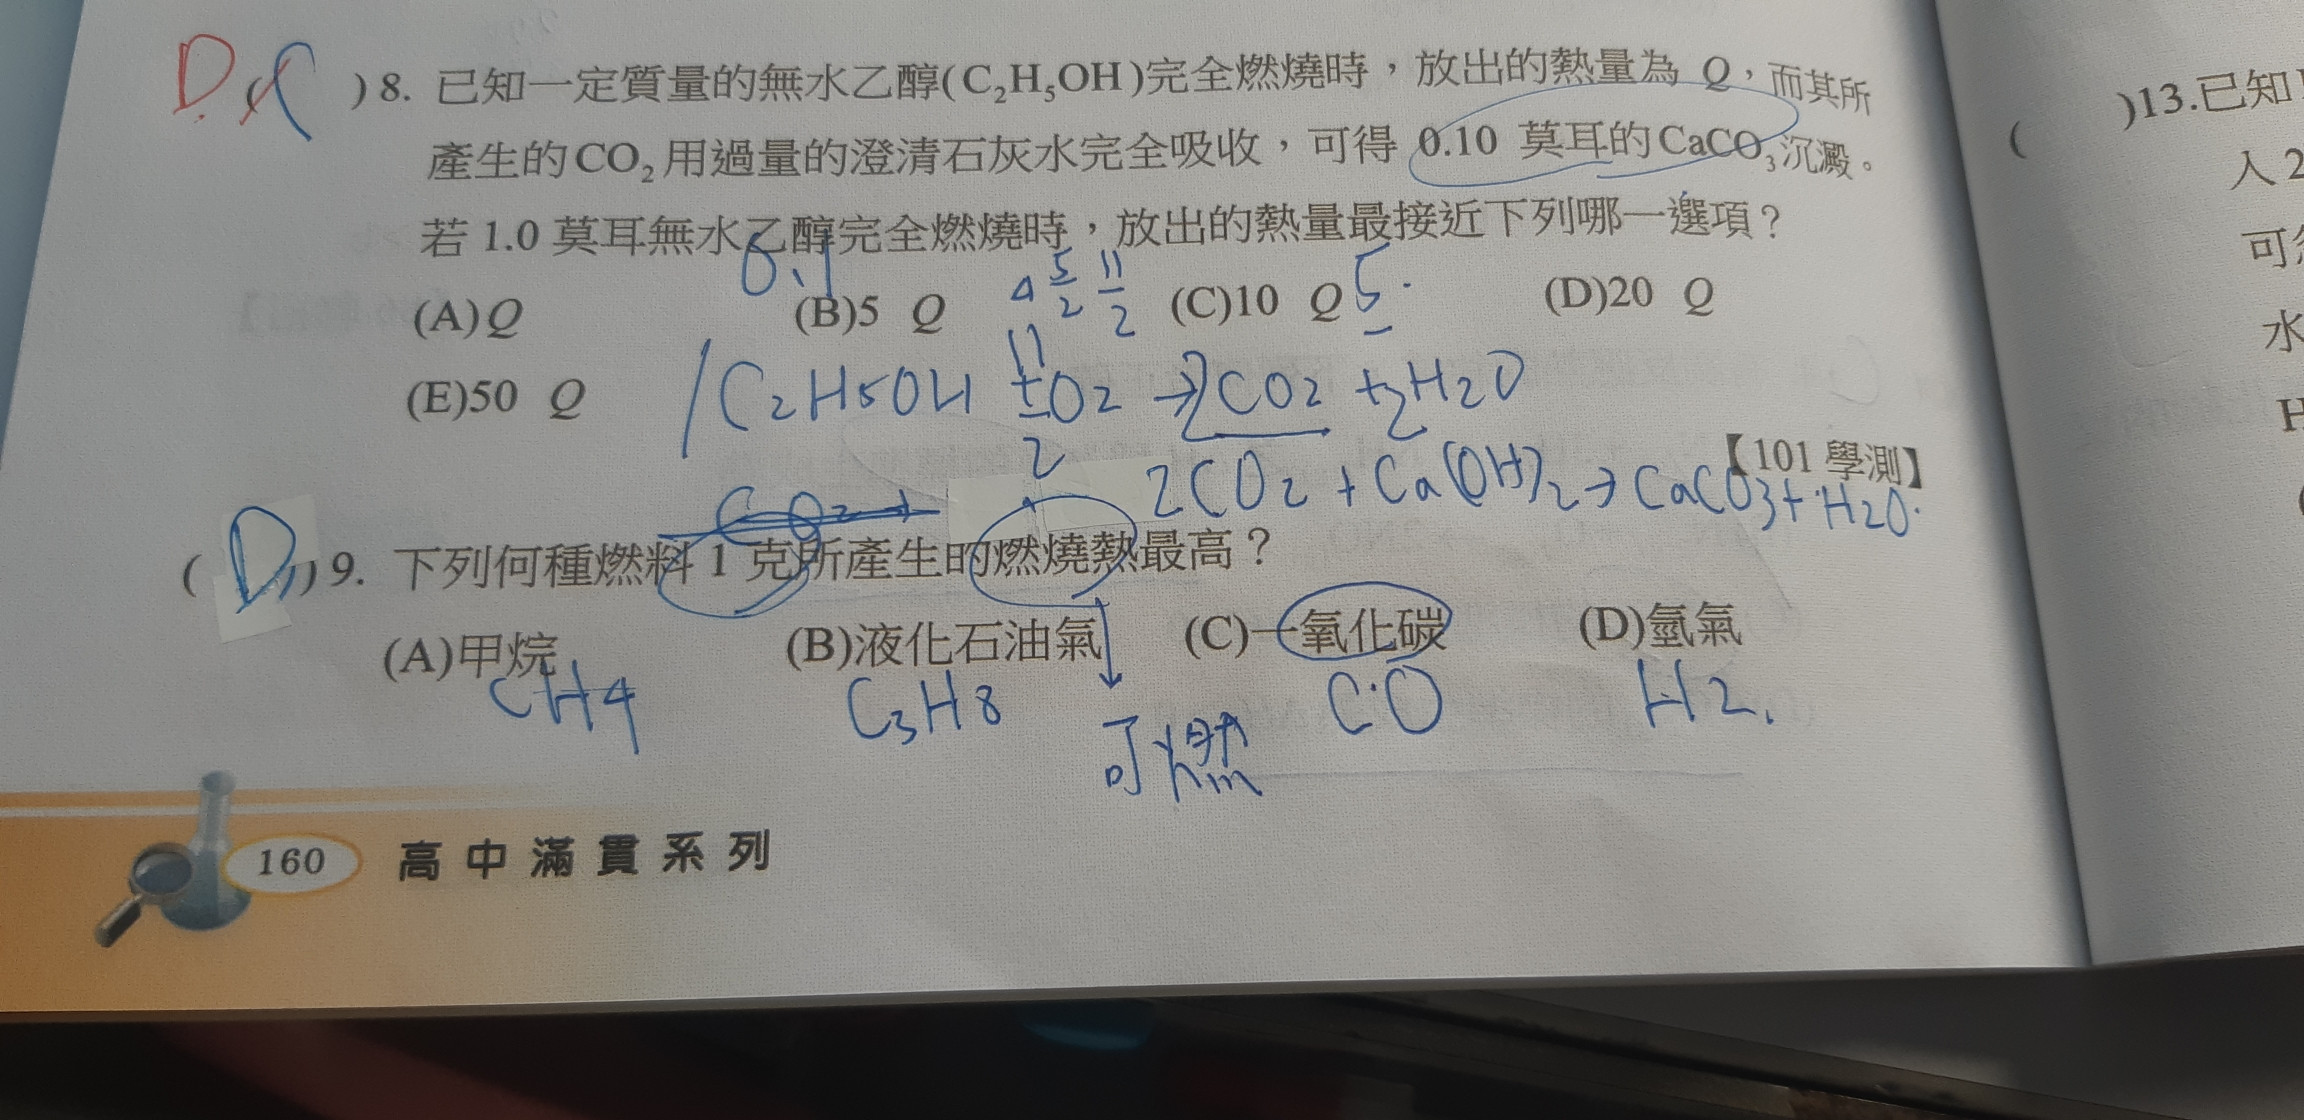 D. C
( )8. 已知一定質量的無水乙醇(C₂H₅OH)完全燃燒時，放出的熱量為 Q，而其所
產生的CO₂用過量的澄清石灰水完全吸收，可得 0.10 莫耳的CaCO₃沉澱。
若 1.0 莫耳無水乙醇完全燃燒時，放出的熱量最接近下列哪一選項？
0.1
(A)Q (B)5 Q (C)10 Q (D)20 Q
4 5/2 11/2 5.
(E)50 Q
1C2H5OH + 11/2 O2 → 2CO2 + H2O
【101 學測】
2CO2 + Ca(OH)2 → CaCO3 + H2O.
CO2 →
( D )9. 下列何種燃料 1 克所產生的燃燒熱最高？
(A)甲烷 (B)液化石油氣 (C)一氧化碳 (D)氫氣
CH4 C3H8 CO H2.
可燃
160 高中滿貫系列
( )13.已知
入2
可
水
H
(